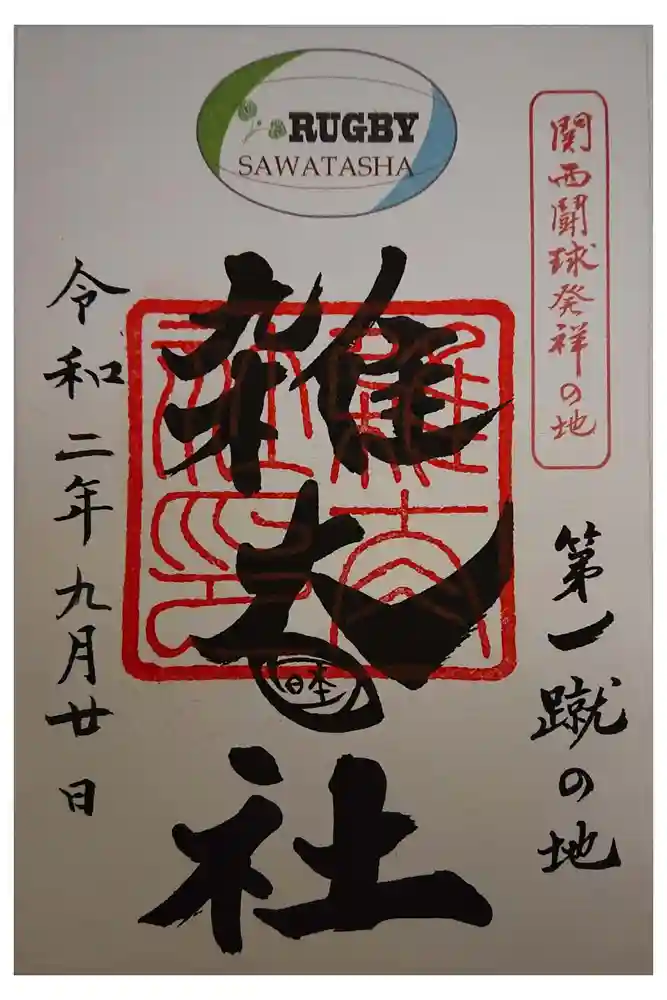 RUGBY
SAWATASHA
関西闘球発祥の地
第一蹴の地
雑太社
日本
令和二年九月廿日